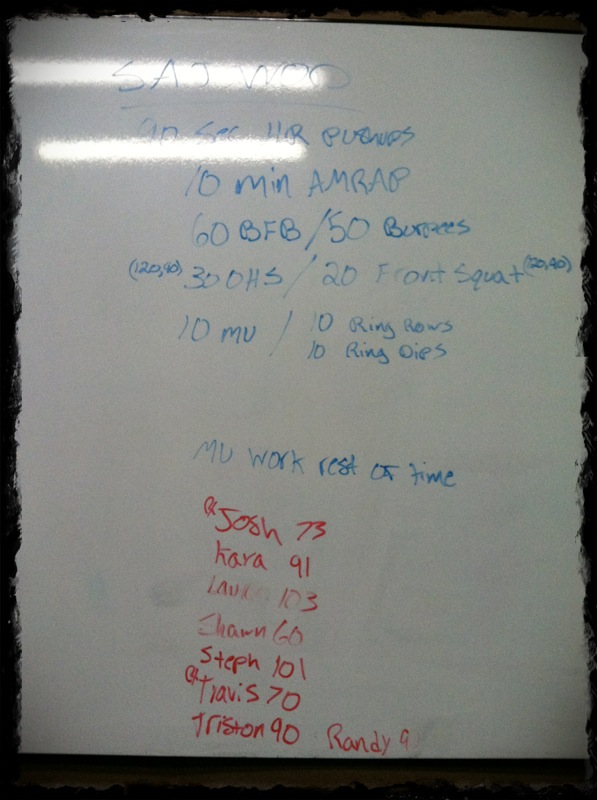 SAT WOD
90 Sec HR pushups
10 min AMRAP
60 BFB / 50 Burpees
(120,90) 30 OHS / 20 Front Squat (120,90)
10 MU / 10 Ring Rows
10 Ring Dips
MU work rest of time
Rx Josh 73
Kara 91
103
Shawn 60
Steph 101
Rx Travis 70
Triston 90 Randy